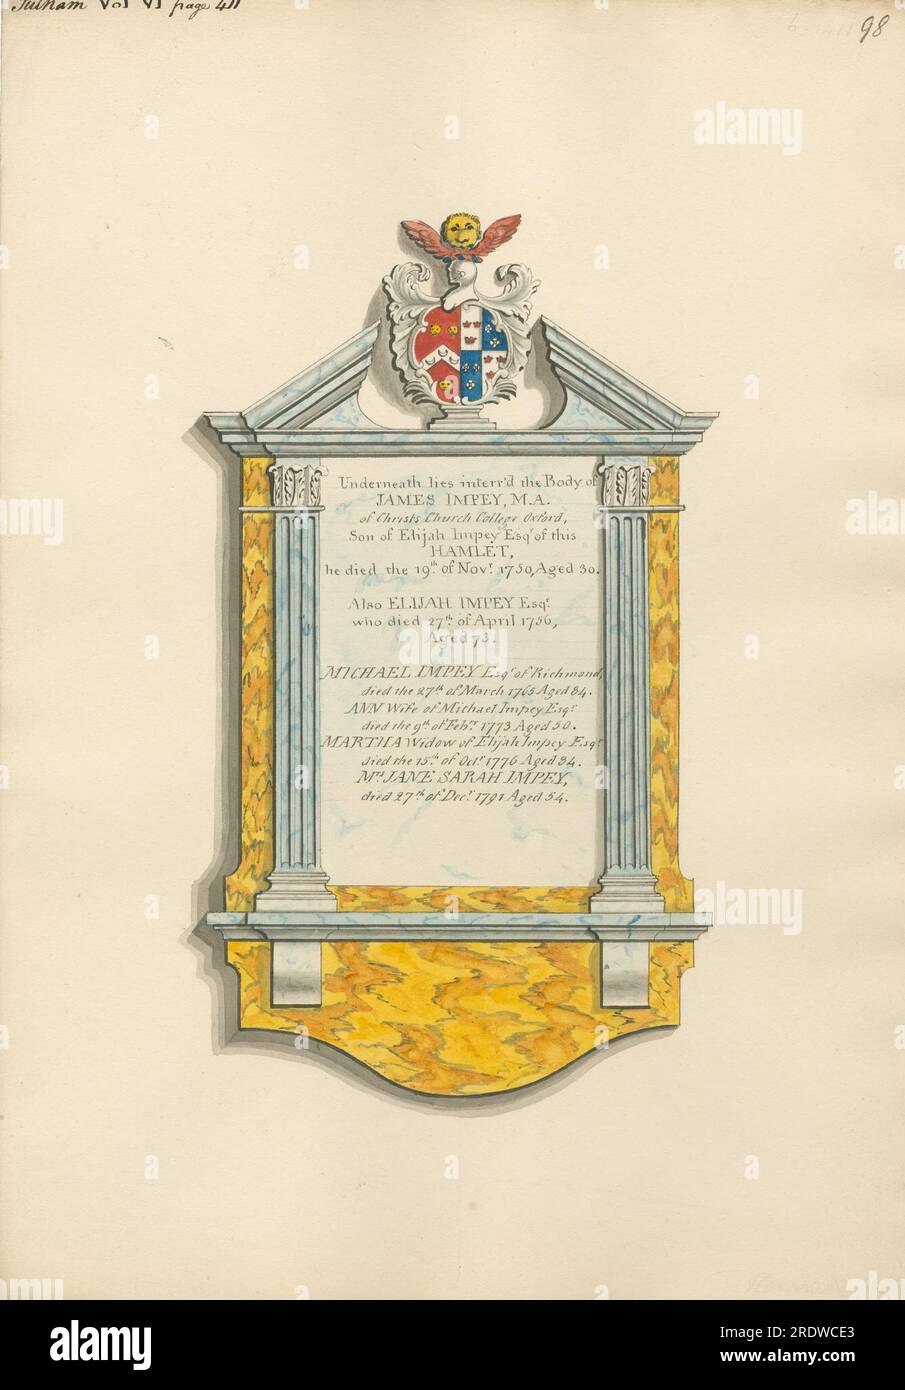 Fulham Vol VI page 411
98
Underneath lies interr'd the Body of
JAMES IMPEY, M.A.
of Christs Church College Oxford,
Son of Elijah Impey Esqr. of this
HAMLET,
he died the 19th. of Novr. 1750, Aged 30.
Also ELIJAH IMPEY Esqr.
who died 27th. of April 1756,
Aged 73.
MICHAEL IMPEY Esqr. of Richmond,
died the 27th. of March 1765 Aged 84.
ANN Wife of Michael Impey Esqr.
died the 9th. of Febr. 1773 Aged 50.
MARTHA Widow of Elijah Impey Esqr.
died the 15th. of Octr. 1776 Aged 84.
Mrs. JANE SARAH IMPEY,
died 27th. of Decr. 1791 Aged 54.
alamy
Image ID: 2RDWCE3
www.alamy.com